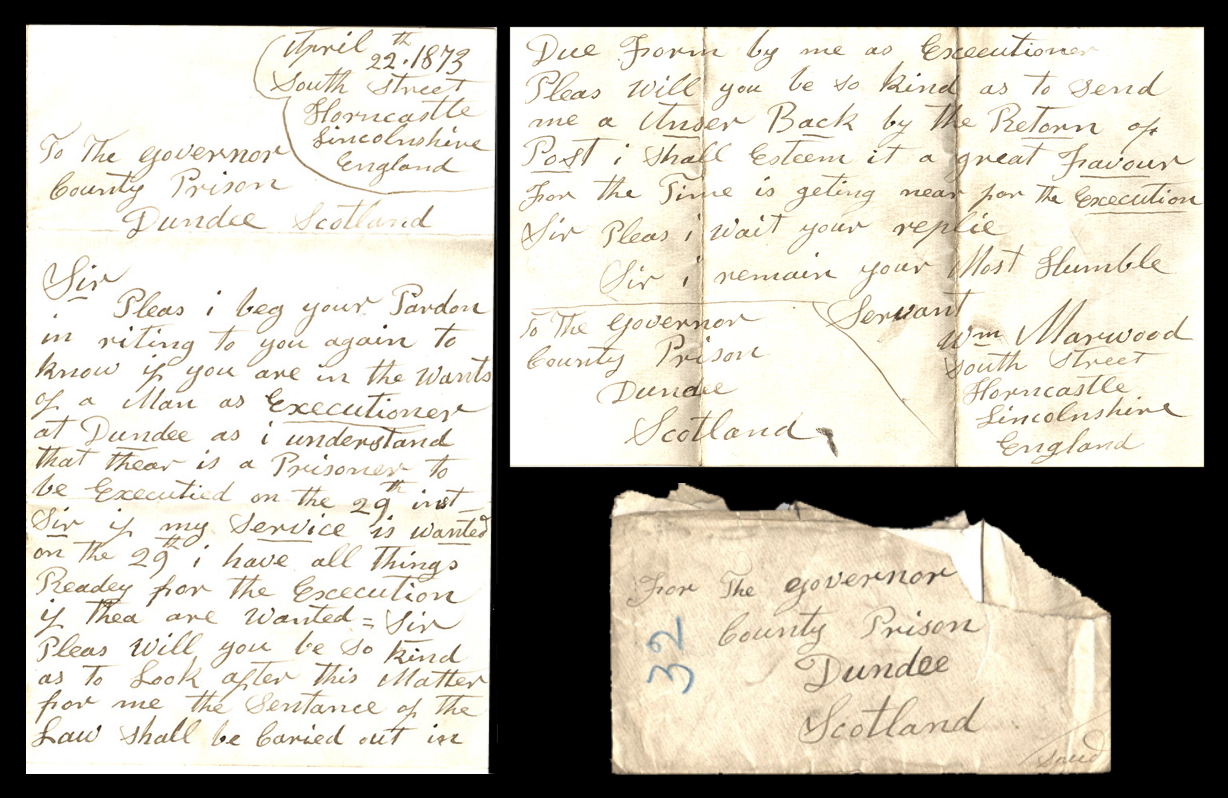 April
22.th 1873
South Street
Horncastle
Lincolnshire
England
To The governor
County Prison
Dundee Scotland
Sir
Pleas i beg your Pardon
in riting to you again to
know if you are in the Wants
of a Man as Executioner
at Dundee as i understand
that thear is a Prisoner to
be Executied on the 29th inst
Sir if my Service is wanted
on the 29th i have all things
Readey for the Excecution
if thea are Wanted = Sir
Pleas Will you be so kind
as to Look after this Matter
for me the Sentance of the
Law shall be Caried out in
Due Form by me as Excecutioner
Pleas Will you be so kind as to send
me a Anser Back by the Retorn of
Post i shall Esteem it a great Favour
For the Time is geting near for the Execution
Sir Pleas i Wait your replie
Sir i remain your Most Humble
Servant
Wm Marwood
South Street
Horncastle
Lincolnshire
England
To The Governor
County Prison
Dundee
Scotland
For The governor
County Prison
Dundee
Scotland
32